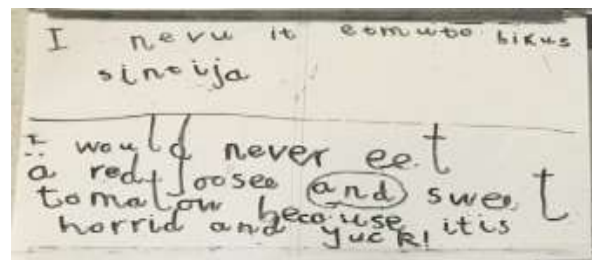 I nevu it eomuto bikus
sinoija
I would never eet
a red joosee and sweet
tomatow because itis
horrid and yuck!